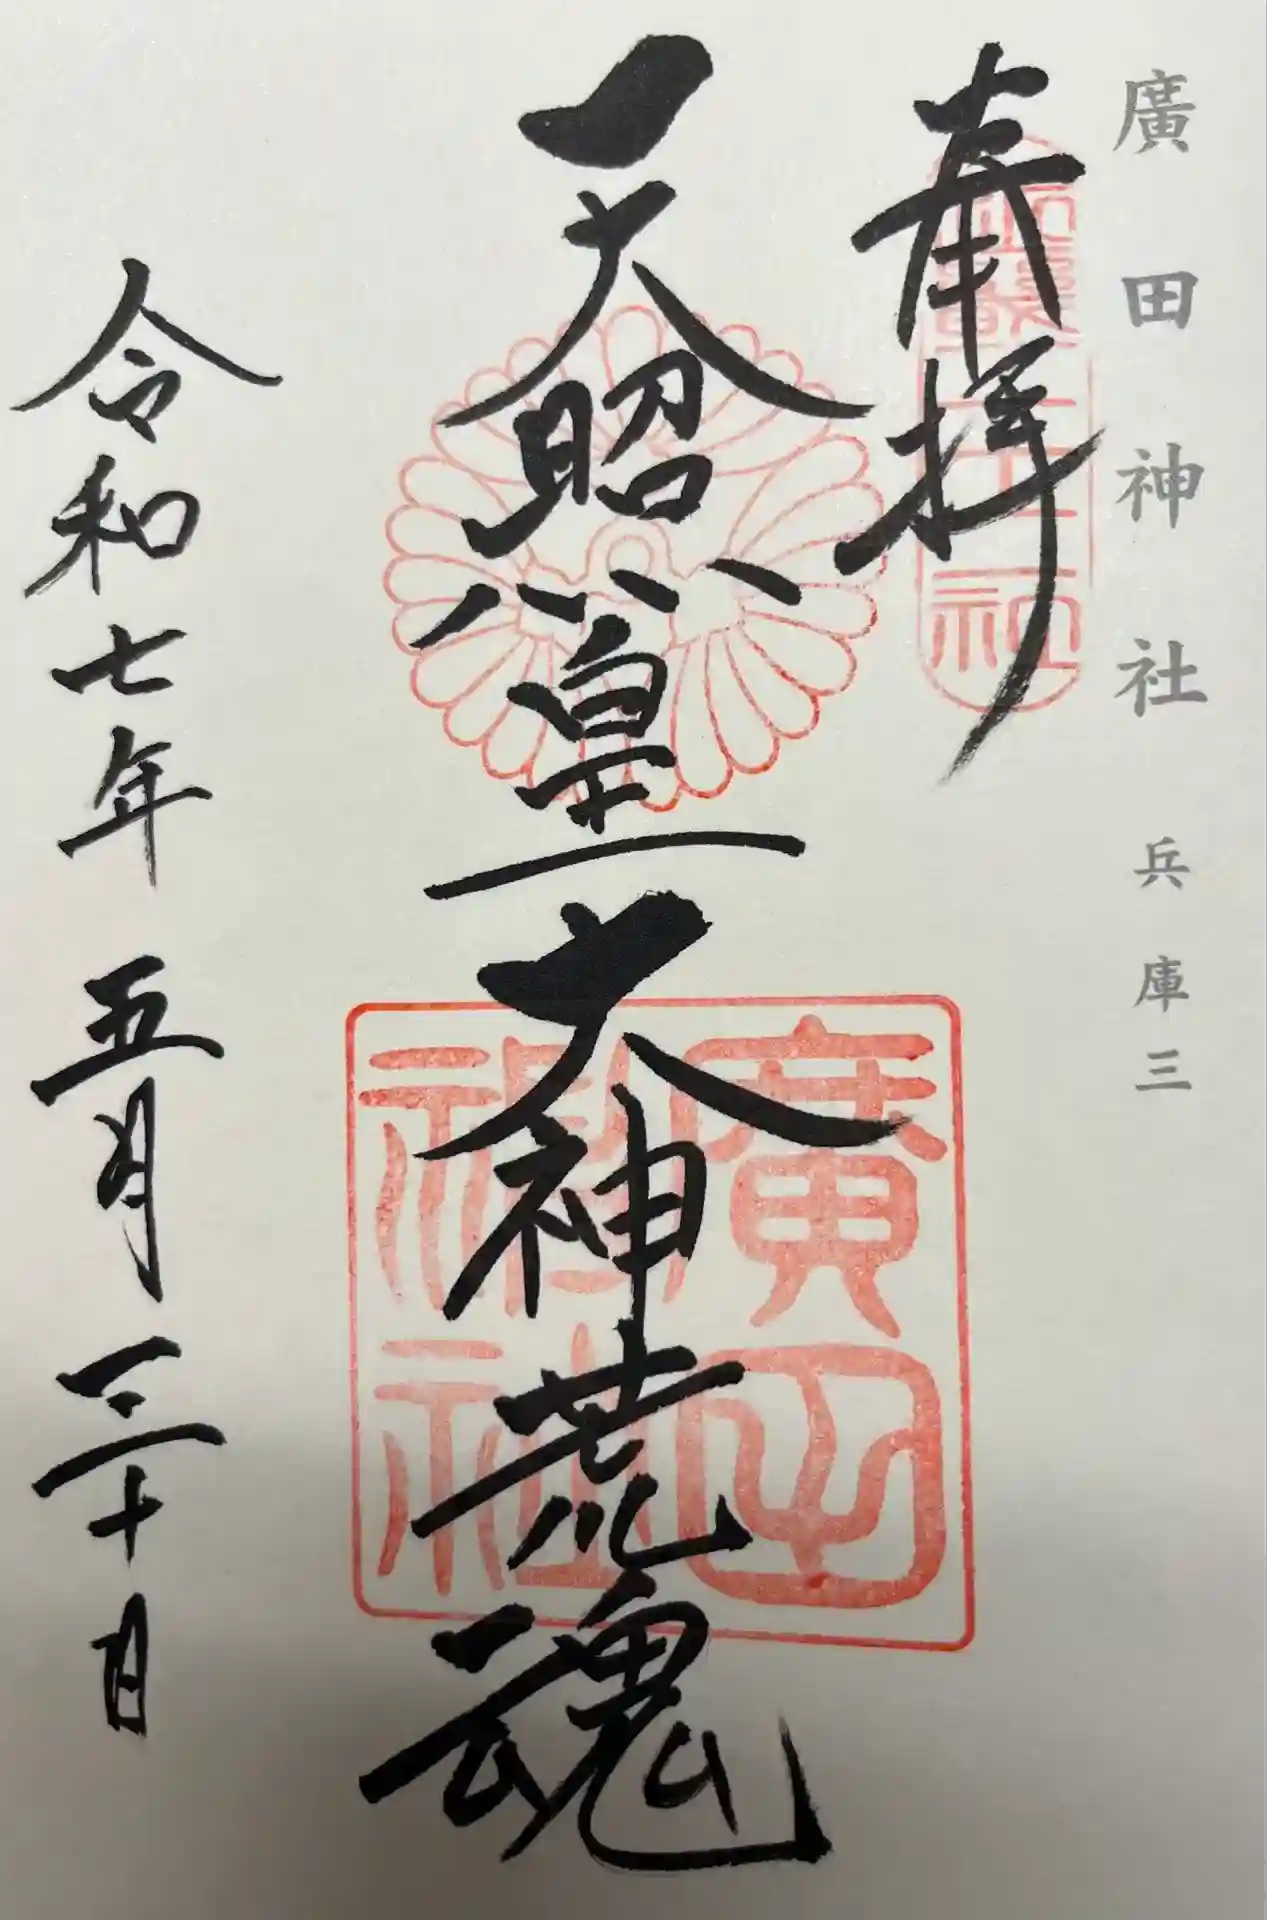 廣田神社 兵庫三
奉拝
二十二社
天照皇大神荒魂
廣田
神社
令和七年 五月 三十日